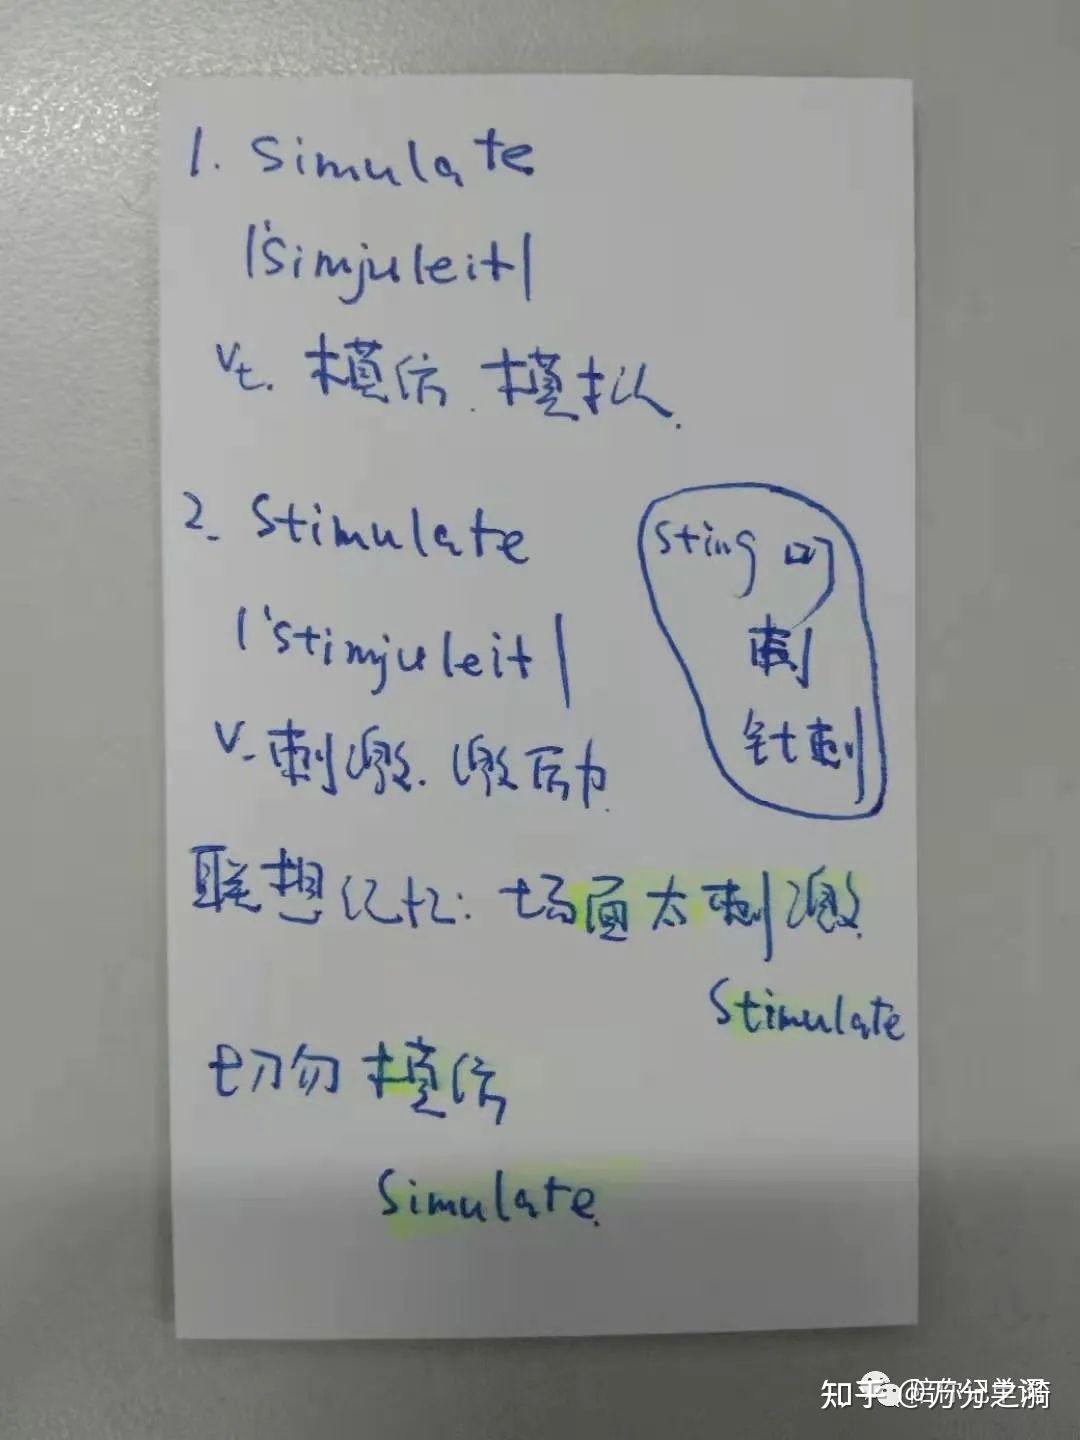 1. Simulate
|'simjuleit|
vt. 模仿. 模拟.
2. Stimulate
|'stimjuleit|
v. 刺激. 激励.
sting 叮
刺
针刺
联想记忆: 场面太刺激.
Stimulate
切勿模仿
Simulate.
知乎 @万分之漪